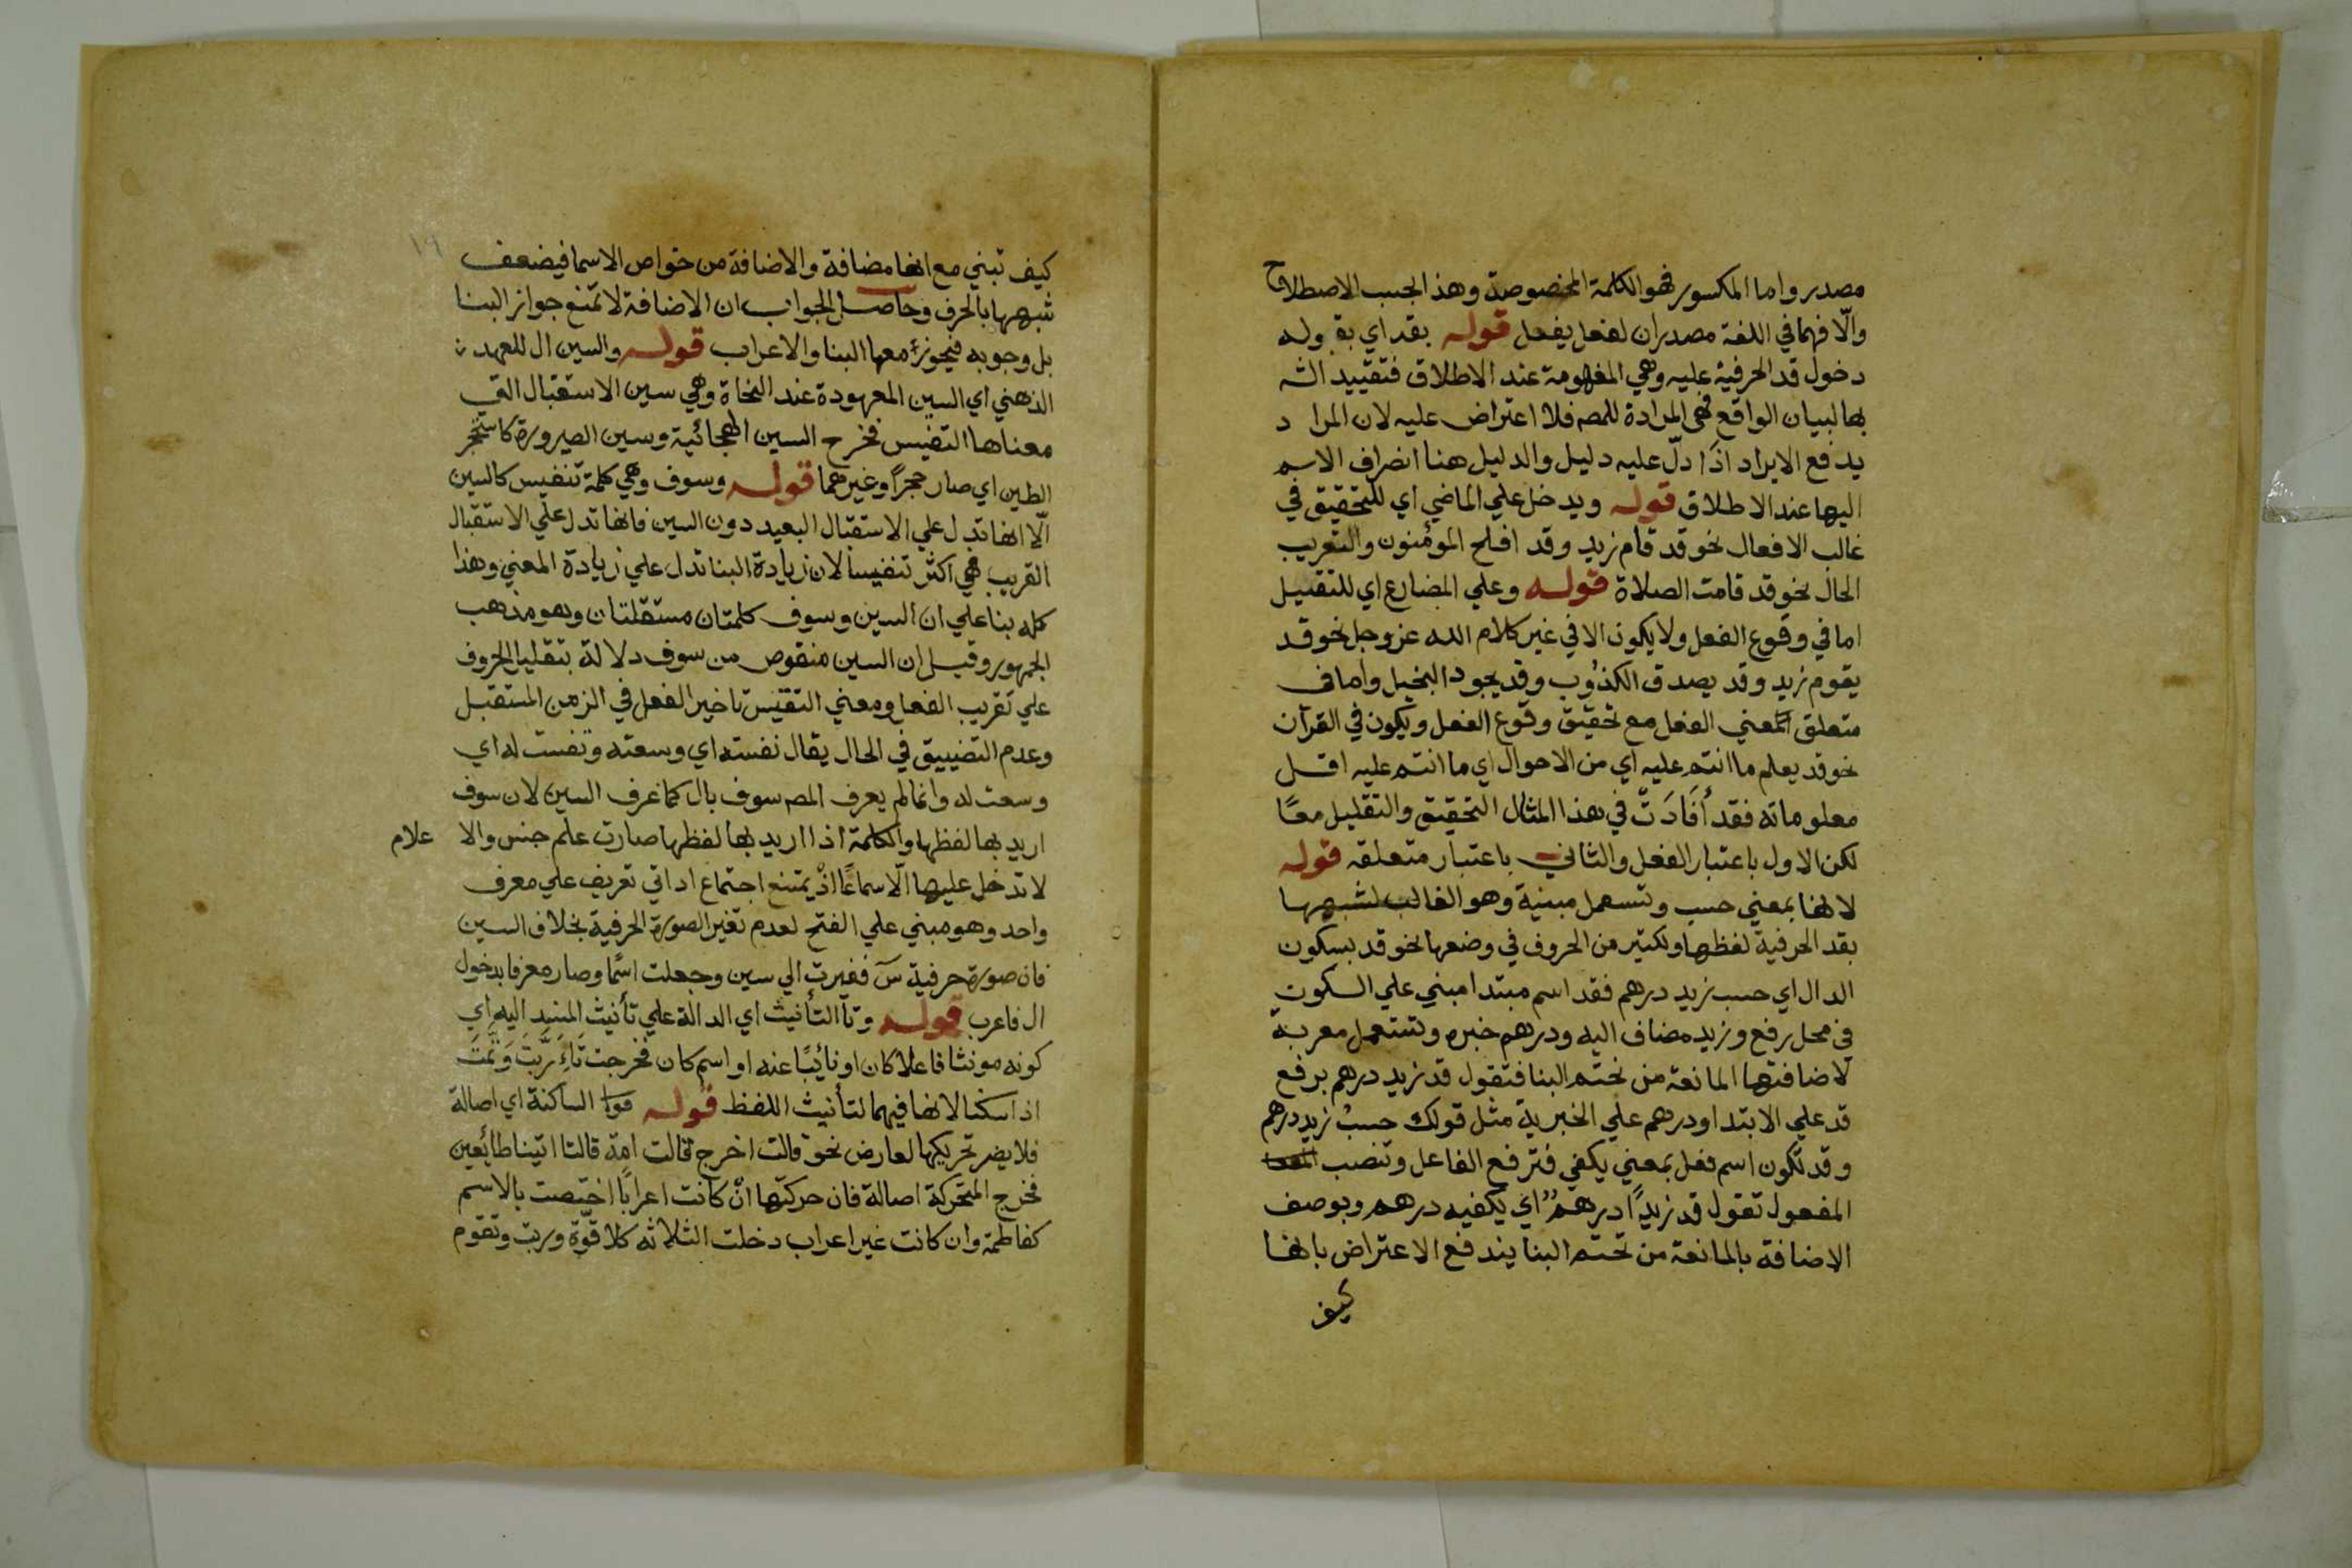 مصدر واما المكسور فهو الكلمة المخصوصة وهذا بحسب الاصطلاح
والّا فهما في اللغة مصدران لفعل يفعل قوله بقد اي بقبوله
دخول قد الحرفية عليه وهي المفهومة عند الاطلاق فتقييد الشـ
بها لبيان الواقع فهي المرادة للمصـ فلا اعتراض عليه لان المراد
يدفع الايراد اذا دلّ عليه دليل والدليل هنا انصراف الاسم
اليها عند الاطلاق قوله ويدخل علي الماضي اي للتحقيق في
غالب الافعال نحو قد قام زيد وقد افلح المؤمنون والتقريب
الحال نحو قد قامت الصلاة قوله وعلي المضارع اي للتقليل
اما في وقوع الفعل ولا يكون الا في غير كلام الله عز وجل نحو قد
يقوم زيد وقد يصدق الكذوب وقد يجود البخيل واما في
متعلق المعني الفعل مع تحقيق وقوع الفعل ويكون في القرآن
نحو قد يعلم ما انتم عليه اي من الاحوال اي ما انتم عليه اقل
معلوماته فقد أَفَادَتْ في هذا المثال التحقيق والتقليل معًا
لكن الاول باعتبار الفعل والثاني باعتبار متعلقه قوله
لانها بمعني حسب وتسعمل مبنية وهو الغالب لشبهها
بقد الحرفية لفظها ولكثير من الحروف في وضعها نحو قد بسكون
الدال اي حسب زيد درهم فقد اسم مبتدا مبني علي السكون
في محل رفع وزيد مضاف اليه ودرهم خبره وتستعمل معربة
لاضافتها المانعة من تحتم البنا فتقول قد زيد درهم برفع
قد علي الابتدا ودرهم علي الخبرية مثل قولك حسبُ زيد درهم
وقد تكون اسم فعل بمعني يكفي فترفع الفاعل وتنصب
المفعول تقول قد زيدًا درهمٌ اي يكفيه درهم وبوصف
الاضافة بالمانعة من تحتم البنا يندفع الاعتراض بانها
كيف
١٩
كيف تبني مع انها مضافة والاضافة من خواص الاسما فيضعف
شبهها بالحرف وحاصل الجواب ان الاضافة لا تمنع جواز البنا
بل وجوبه فيجوز معها البنا والاعراب قوله والسين ال للعهد
الذهني اي السين المعهودة عند النحاة وهي سين الاستقبال التي
معناها التنفيس فخرج السين الهجائية وسين الصيرورة كاستحجر
الطين اي صار حجرًا وغيرهما قوله وسوف وهي كلمة تنفيس كالسين
الّا انها تدل علي الاستقبال البعيد دون السين فانها تدل علي الاستقبال
القريب فهي اكثر تنفيسا لان زيادة البنا تدل علي زيادة المعني وهذا
كله بنا علي ان السين وسوف كلمتان مستقلتان وهو مذهب
الجمهور وقيل ان السين منقوص من سوف دلالة بتقليل الحروف
علي تقريب الفعل ومعني التنفيس تاخير الفعل في الزمن المستقبل
وعدم التضييق في الحال يقال نفسته اي وسعته ونفست له اي
وسعت له وانما لم يعرف المصـ سوف بال كما عرف السين لان سوف
اريد بها لفظها والكلمة اذا اريد بها لفظها صارت علم جنس والاعلام
لا تدخل عليها الّا سماعًا اذْ يمتنع اجتماع اداتي تعريف علي معرف
واحد وهو مبني علي الفتح لعدم تغير الصورة الحرفية بخلاف السين
فان صورة حرفية سَ فغيرت الي سين وجعلت اسمًا وصار معرفا بدخول
ال فاعرب قوله وتا التأنيث اي الدالة علي تأنيث المسند اليه اي
كونه مونثا فاعلا كان او نائبًا عنه او اسم كان فخرجت تَاءُ رُبَّتَ وَثَمَّتَ
اذا سكنا لانها فيهما لتأنيث اللفظ قوله الساكنة اي اصالة
فلا يضر تحريكها لعارض نحو قالت اخرج قالت امة قالتا اتينا طائعين
فخرج المتحركة اصالة فان حركتها انْ كانت اعرابًا اختصت بالاسم
كفاطمة وان كانت غير اعراب دخلت الثلاثه كلا قوّة وربت وتقوم